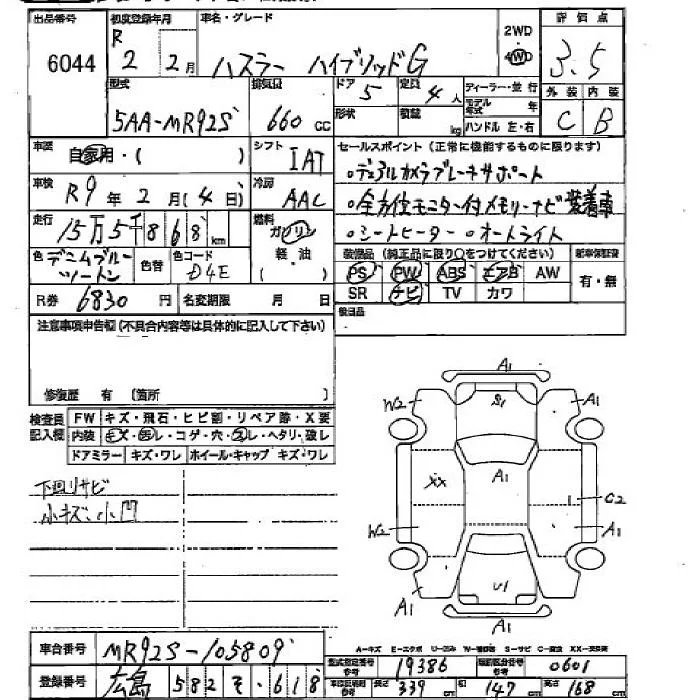 出品番号 初度登録年月 車名・グレード 2WD 評価点
6044 R 2 2月 ハスラー ハイブリッドG 4WD 3.5
型式 排気量 ドア 5 定員 4人 ディーラー・並行 外装 内装
5AA-MR92S 660cc 形状 積載 kg モデル年式 年 C B
ハンドル 左・右
車歴 自家用・( ) シフト IAT セールスポイント (正常に機能するものに限ります)
・デュアルカメラブレーキサポート
車検 R9年2月(4日) 冷房 AAC ・全方位モニター付メモリーナビ装着車
走行 15万5千868km 燃料 ガソリン 軽油 ( ) ・シートヒーター ・オートライト
色 デニムブルーツートン 色替 色コード D4E 装備品 (純正品に限り○をつけてください) 新車保証書
PS PW ABS エアB AW 有・無
R券 6830円 名変期限 月 日 SR ナビ TV カワ
注意事項申告欄 (不具合内容等は具体的に記入して下さい) 後日品
修復歴 有 〔箇所 〕
検査員記入欄 FW キズ・飛石・ヒビ割・リペア跡・X要
内装 キズ・汚レ・コゲ・穴・スレ・ヘタリ・破レ
ドアミラー キズ・ワレ ホイール・キャップ キズ・ワレ
下回リサビ
小キズ、小凹
A1
W2 S1 A1
A1
XX C2
W2 A1
A1 U1 A1
A-キズ E-エクボ U-凹ミ W-補修跡 S-サビ C-腐食 XX-交換済
車台番号 MR92S-105809 型式指定番号 19386 類別区分番号 0601
登録番号 広島 582 そ・618 長さ 339cm 幅 147cm 高さ 168cm